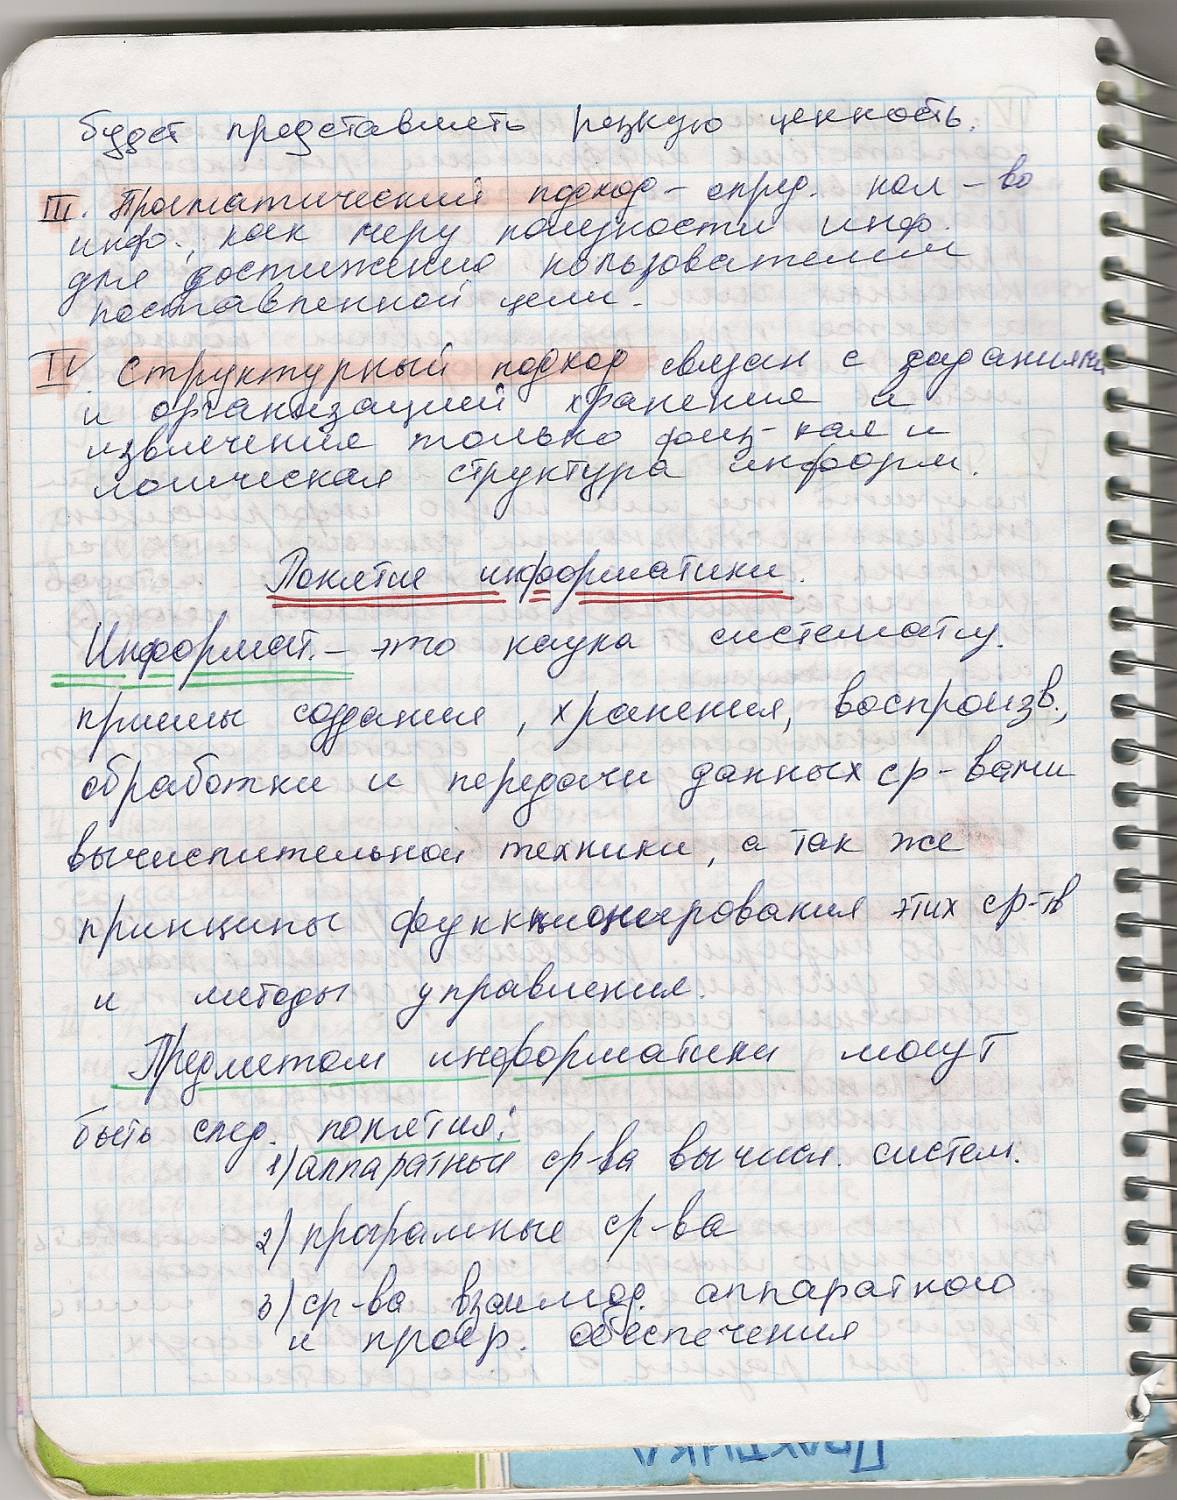 будет представлять разную ценность.
III. Прагматический подход - опред. кол-во
инфо., как меру полезности инф.
для достижения пользователем
поставленной цели.
IV. Структурный подход связан с задачами
и организацией хранения и
извлечения только физ-кая и
логическая структура информ.
Понятие информатики.
Информат. - это наука систематиз.
приемы создания, хранения, воспроизв.,
обработки и передачи данных ср-вами
вычислительной техники, а так же
принципы функционирования этих ср-тв
и методы управления.
Предметом информатики могут
быть след. понятия:
1) аппаратный ср-ва вычисл. систем.
2) програмные ср-ва
3) ср-ва взаимод. аппаратного
и прогр. обеспечения
Практика